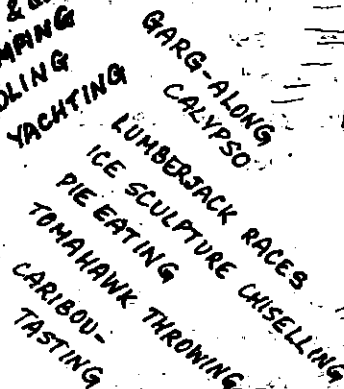 &
MPING
DLING
YACHTING
GARG-ALONG
CALYPSO
LUMBERJACK RACES
ICE SCULPTURE CHISELLING
PIE EATING
TOMAHAWK THROWING
CARIBOU-
TASTING